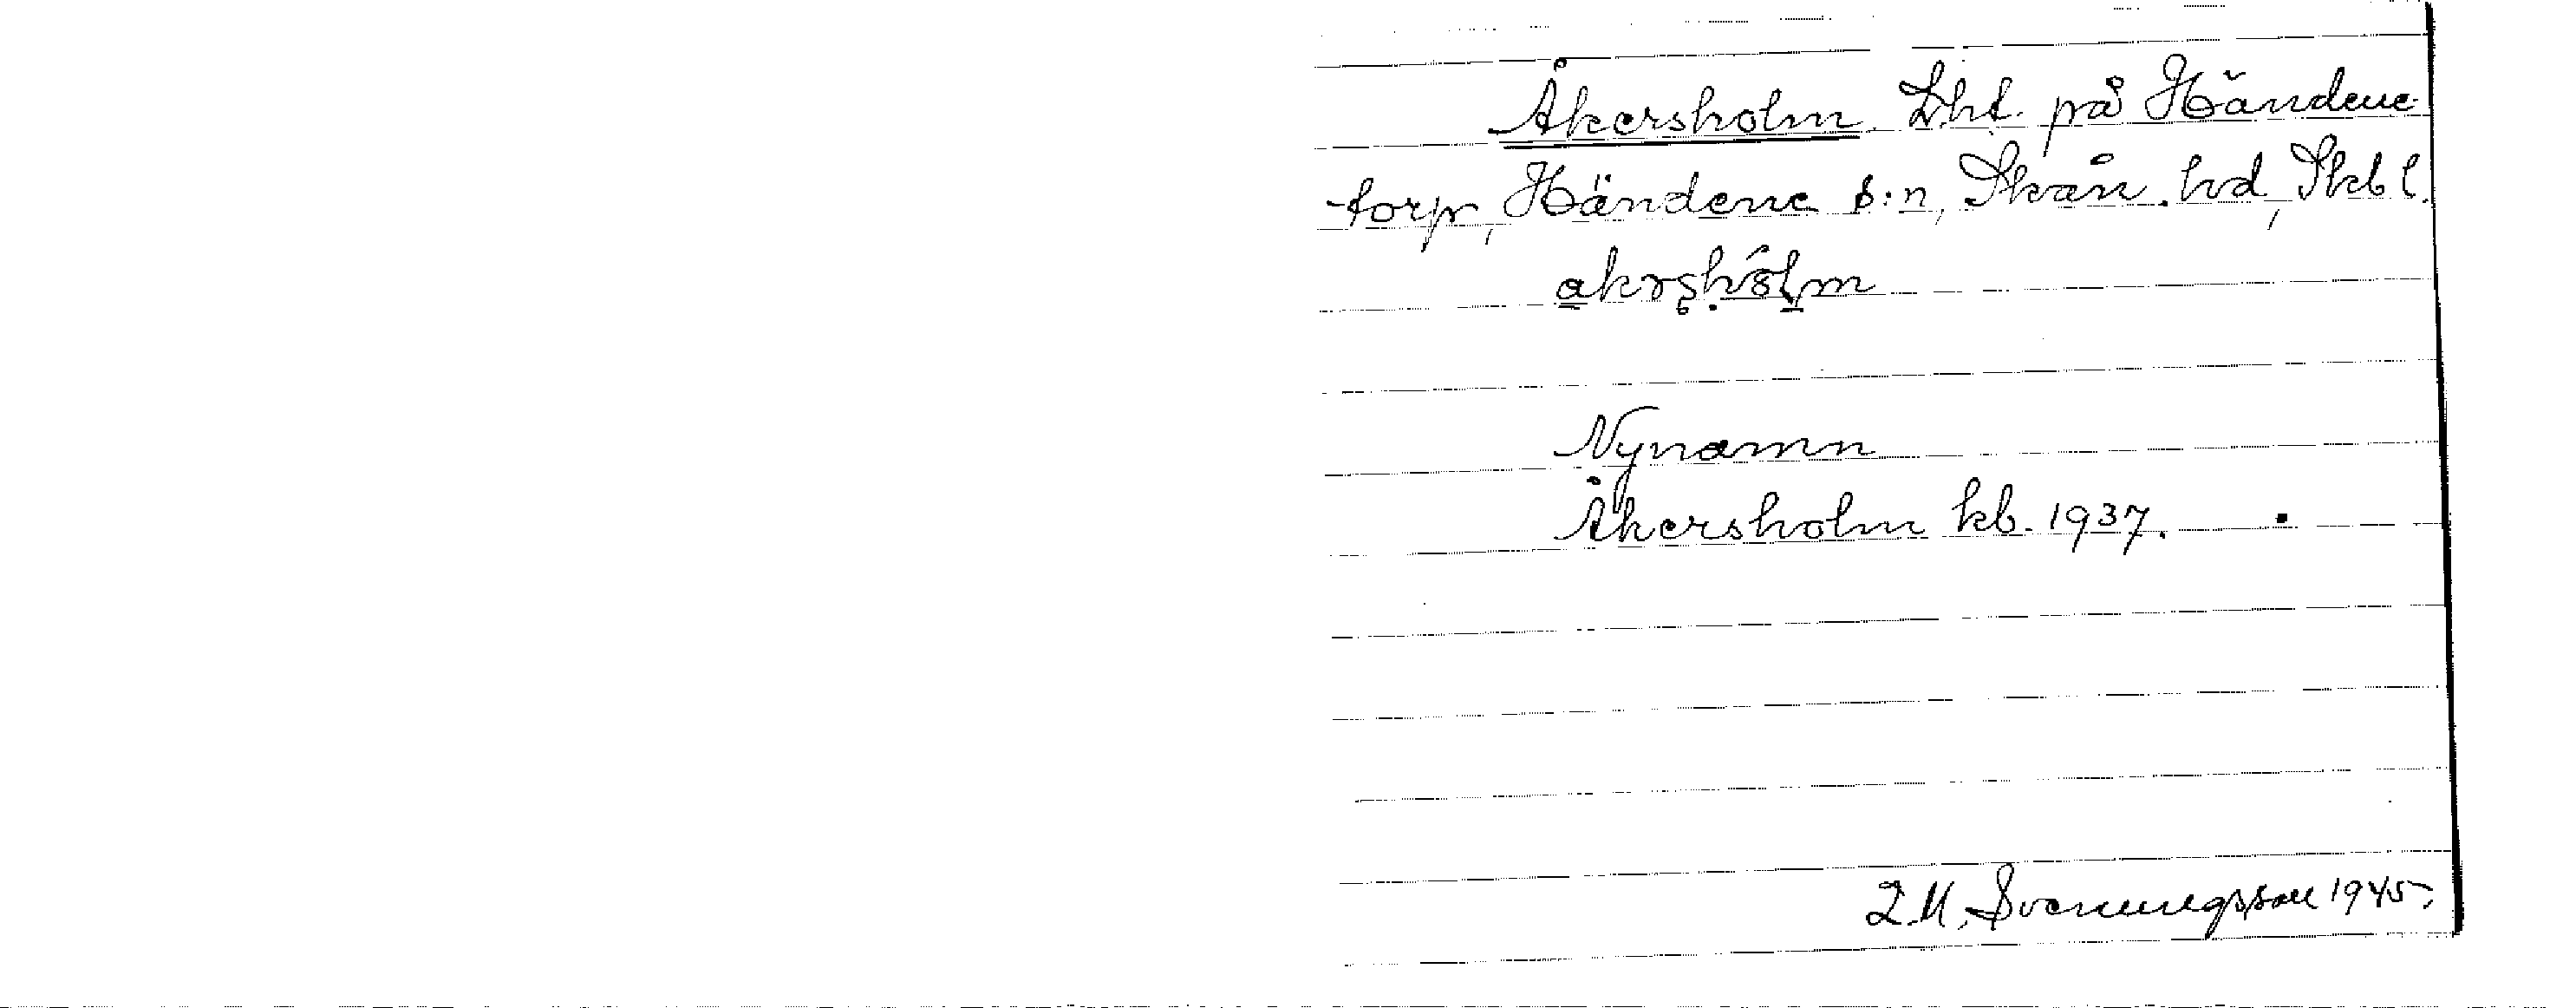 Åkersholm. Lht. på Händene
torp, Händene s:n, Skån. hd, Skbl.
Nynamn
Åkersholm kb. 1937.
Svenungsson 1945.